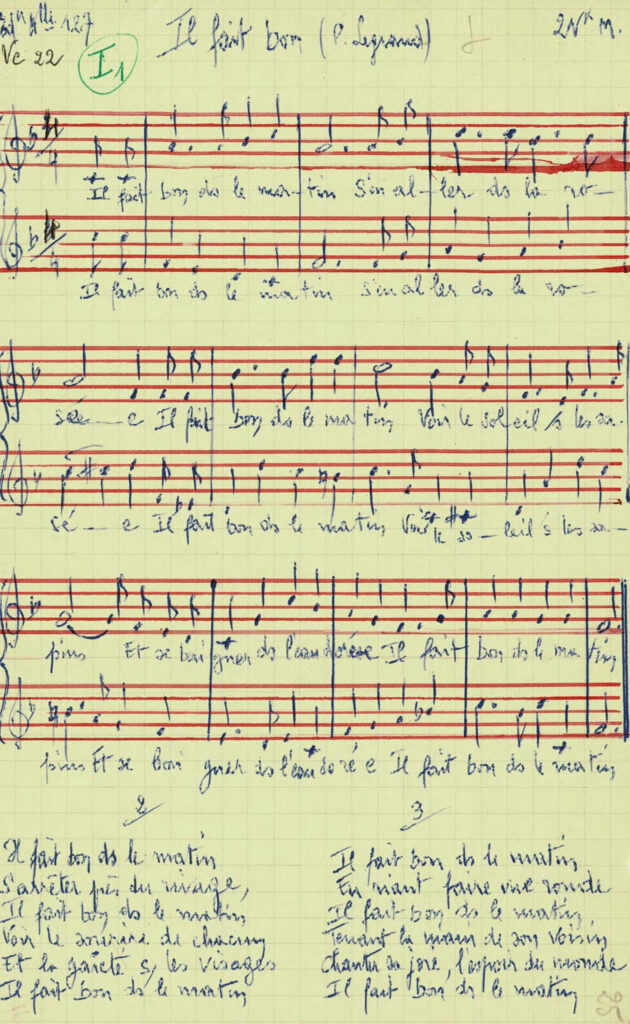 127
Vc 22
I1
Il fait bon (P. Legrand)
2 Vx M.
Il fait bon ds le ma-tin S'en al-ler ds la ro-
Il fait bon ds le matin s'en al ler ds la ro-
sé-e Il fait bon ds le ma tin, Voir le soleil s les sa-
sé-e Il fait bon ds le matin, Voir le so-leil s les sa-
pins Et se bai gner ds l'eau dorée Il fait bon ds le ma tin,
pins Et se bai gner ds l'eau doré e Il fait bon ds le matin,
2
Il fait bon ds le matin
S'arrêter près du rivage,
Il fait bon ds le matin,
Voir le sourire de chacun,
Et la gaieté s, les visages
Il fait bon ds le matin,
3
Il fait bon ds le matin,
En riant faire une ronde
Il fait bon ds le matin,
Tenant la main de son voisin,
Chanter sa joie, l'espoir du monde
Il fait bon ds le matin,